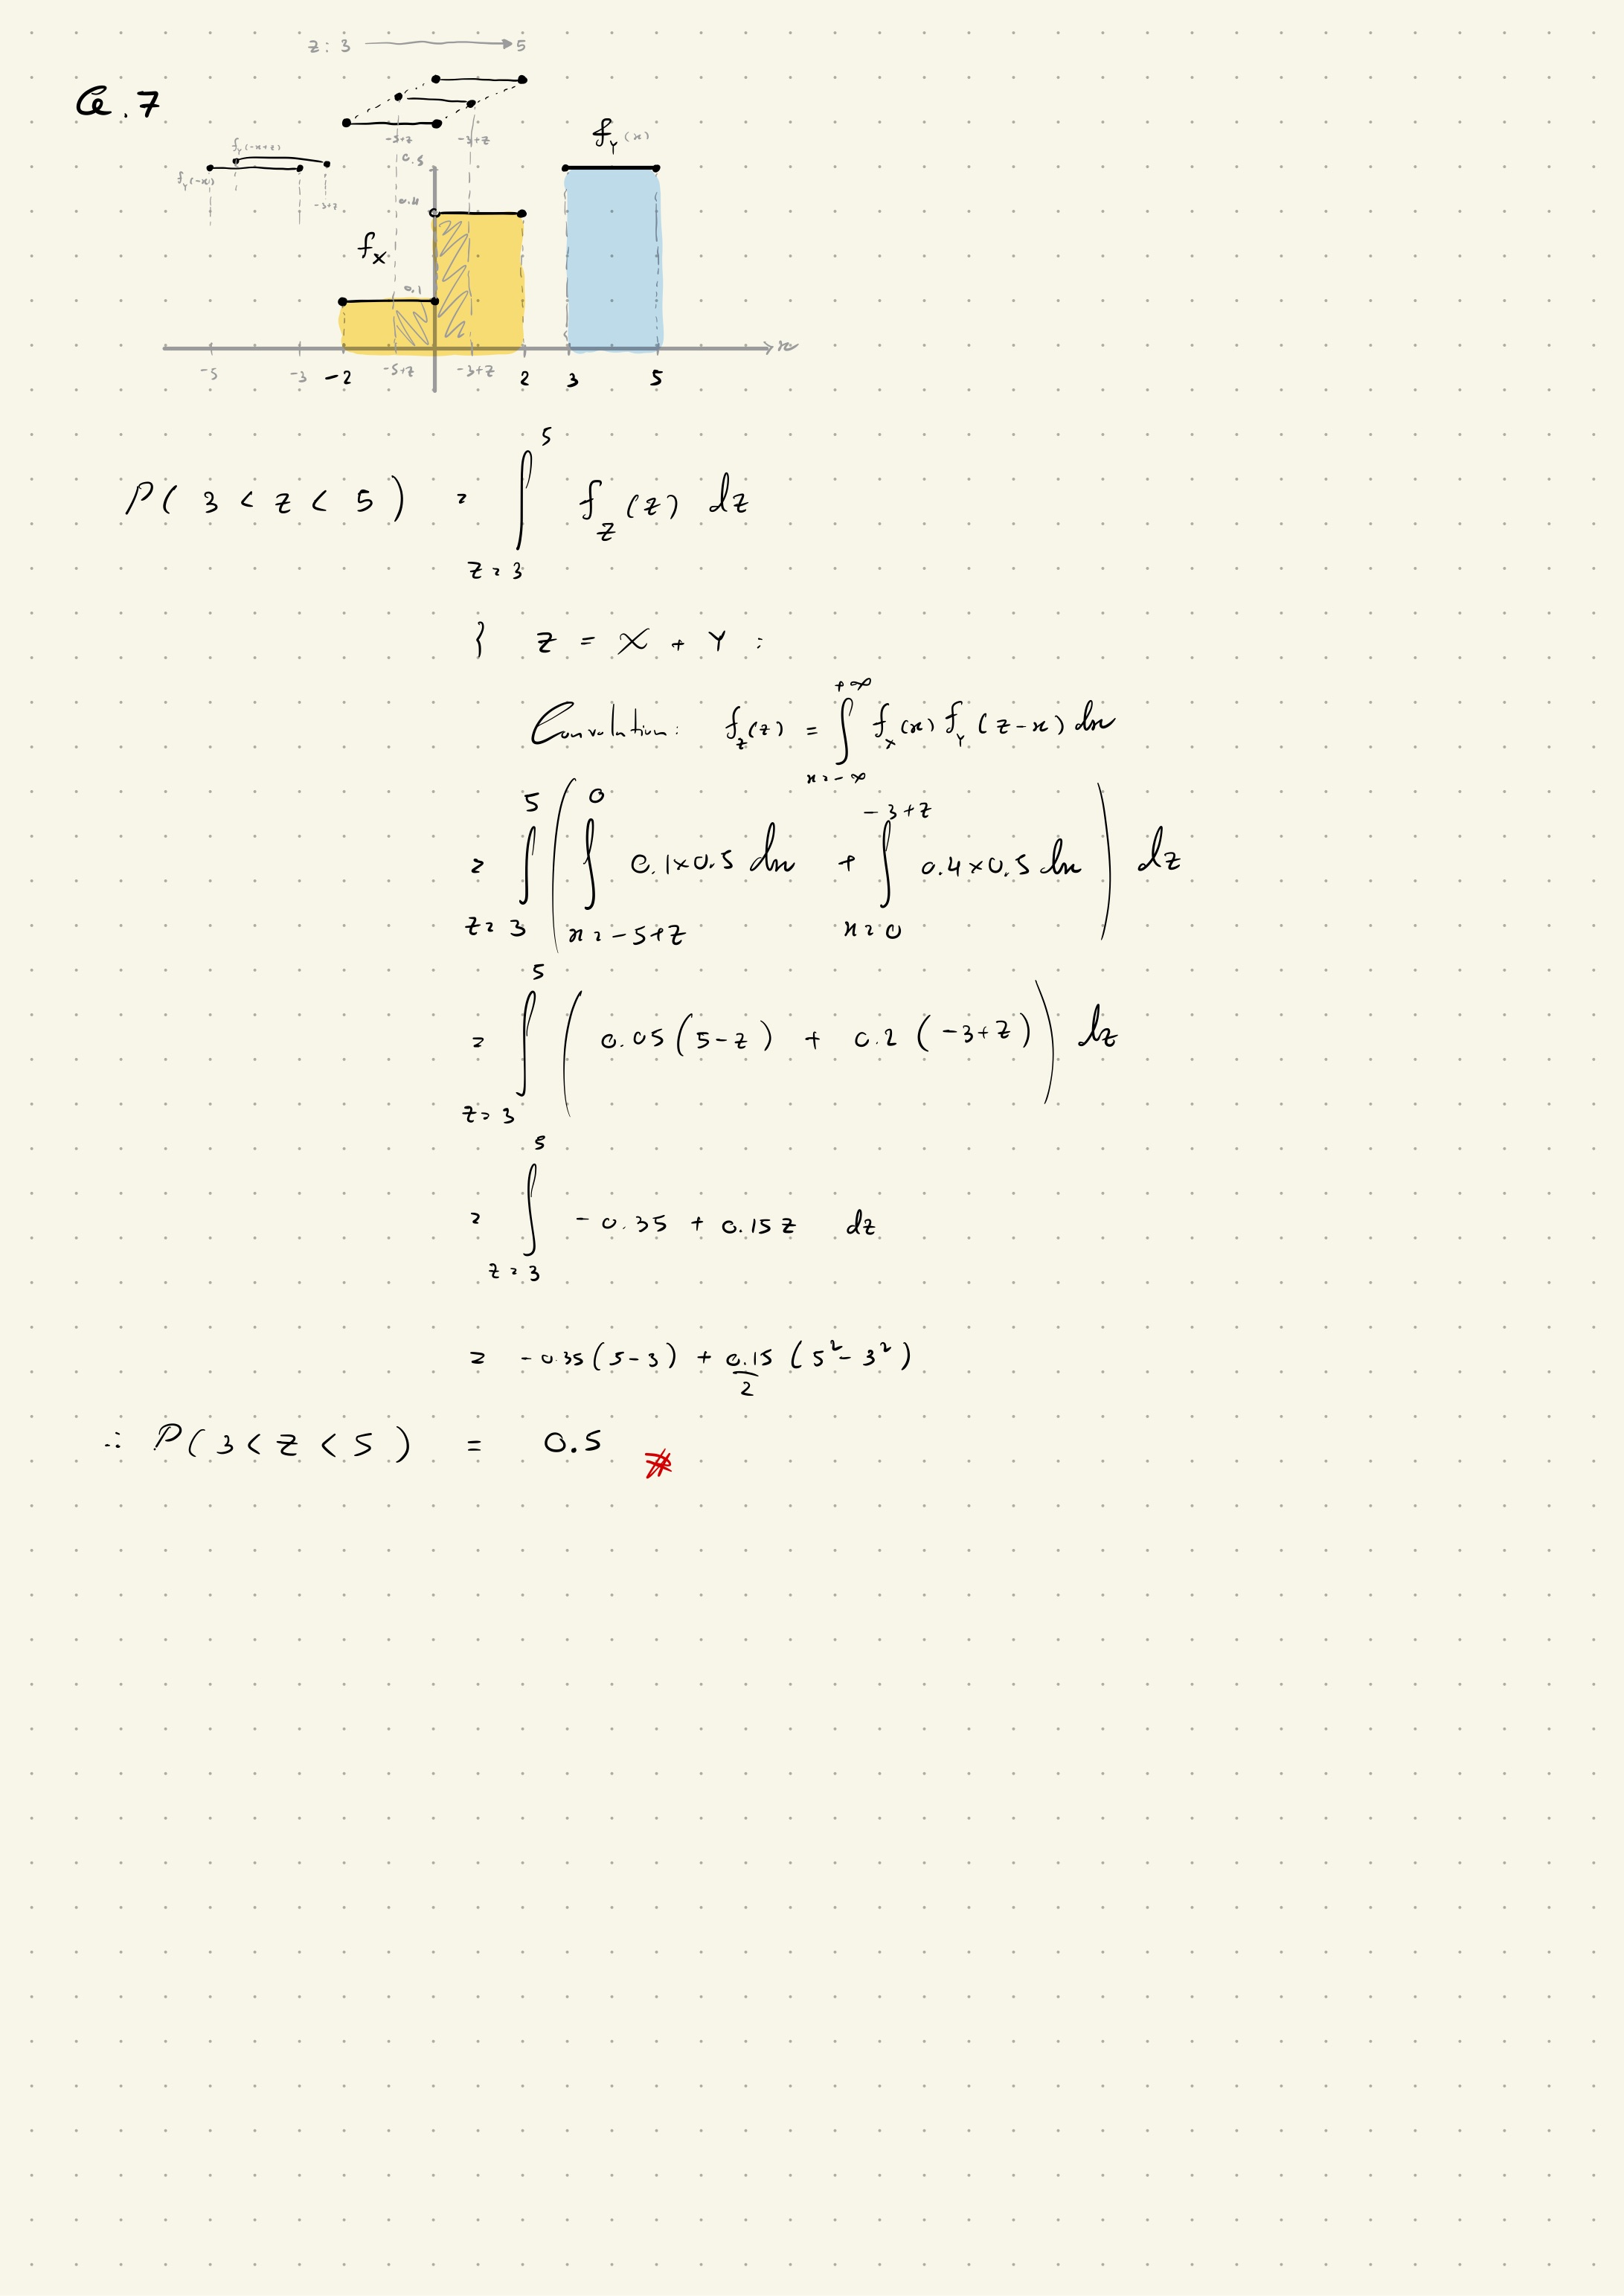 z: 3 → 5
Q.7
f_Y(-x+z)
f_Y(-x)
-3+z
-3+z
0.5
f_Y(x)
-3+z
0.4
f_X
0.1
x
-5 -3 -2 -5+z -3+z 2 3 5
P( 3 < z < 5 ) = ∫_{z=3}^{5} f_Z(z) dz
} z = X + Y :
Convolution: f_z(z) = ∫_{x=-∞}^{+∞} f_X(x) f_Y(z-x) dx
= ∫_{z=3}^{5} ( ∫_{x=-5+z}^{0} 0.1×0.5 dx + ∫_{x=0}^{-3+z} 0.4×0.5 dx ) dz
= ∫_{z=3}^{5} ( 0.05(5-z) + 0.2(-3+z) ) dz
= ∫_{z=3}^{5} -0.35 + 0.15z dz
= -0.35(5-3) + 0.15/2 (5²-3²)
∴ P( 3 < z < 5 ) = 0.5 #